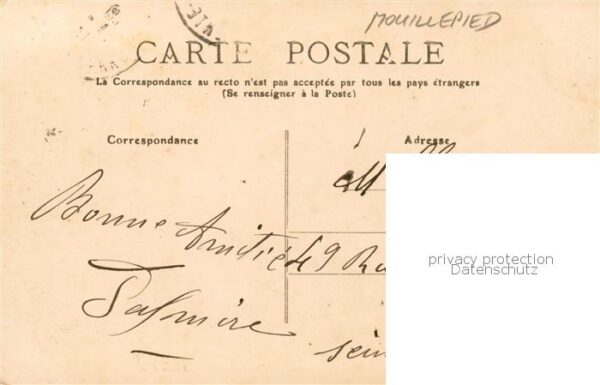 MOUILLEPIED
CARTE POSTALE
La Correspondance au recto n'est pas acceptée par tous les pays étrangers
(Se renseigner à la Poste)
Correspondance
Adresse
Bonne Amitié
Palmire
49 Ru
sein
privacy protection
Datenschutz